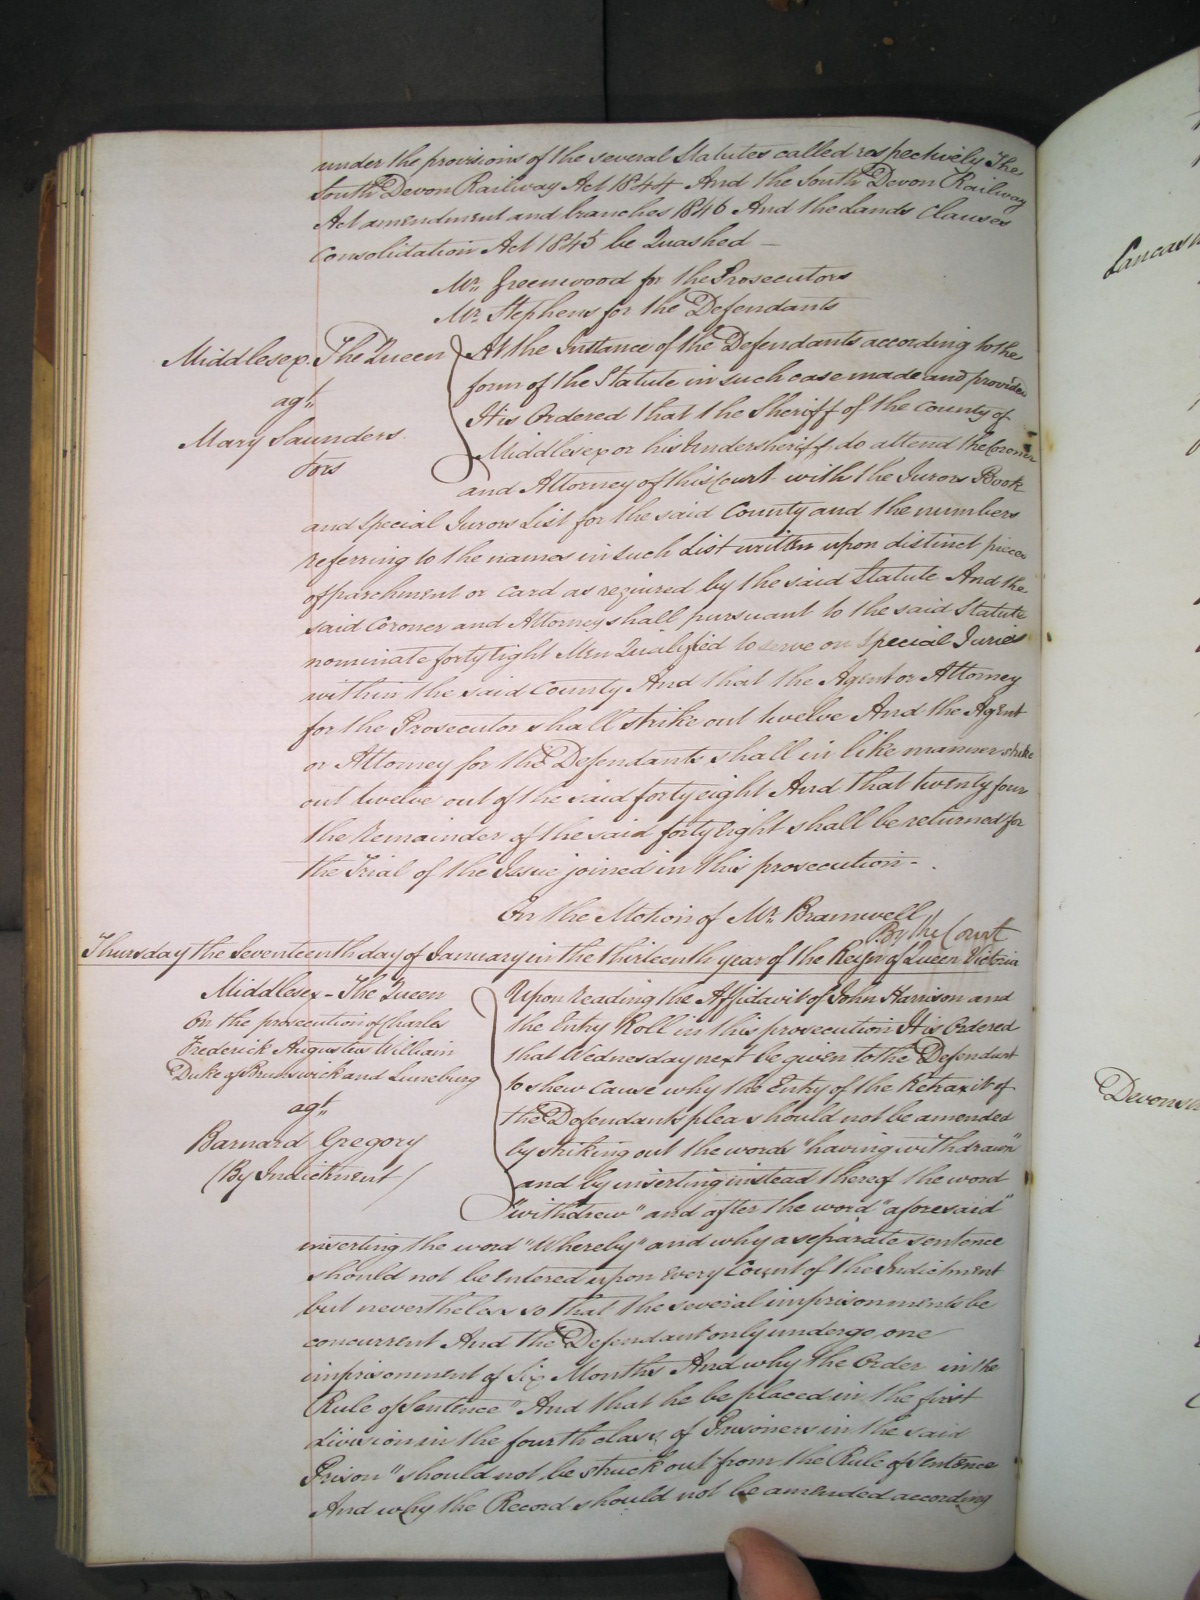 under the provisions of the several Statutes called respectively The
South Devon Railway Act 1844 And the South Devon Railway
Act amendment and branches 1846 And the Lands Clauses
Consolidation Act 1845 be Quashed —
Mr. Greenwood for the Prosecutors
Mr. Stephens for the Defendants
Middlesex. The Queen
agt.
Mary Saunders
& ors
At the Instance of the Defendants according to the
form of the Statute in such case made and provided
It is Ordered that the Sheriff of the County of
Middlesex or his Undersheriff do attend the Coroner
and Attorney of this Court with the Jurors Book
and Special Jurors List for the said County and the numbers
referring to the names in such List written upon distinct pieces
of parchment or card as required by the said Statute And the
said Coroner and Attorney shall pursuant to the said Statute
nominate forty eight Men Qualified to serve on Special Juries
within the said County And that the Agent or Attorney
for the Prosecutor shall strike out twelve And the Agent
or Attorney for the Defendants shall in like manner strike
out twelve out of the said forty eight And that twenty four
the Remainder of the said forty eight shall be returned for
the Trial of the Issue joined in this prosecution -
On the Motion of Mr. Bramwell
By the Court
Thursday the Seventeenth day of January in the thirteenth year of the Reign of Queen Victoria
Middlesex - The Queen
on the prosecution of Charles
Frederick Augustus William
Duke of Brunswick and Luneburg
agt.
Barnard Gregory
(By Indictment)
Upon reading the Affidavit of John Harrison and
the Entry Roll in this prosecution It is Ordered
that Wednesday next be given to the Defendant
to shew Cause why the Entry of the Retraxit of
the Defendants plea should not be amended
by striking out the words "having withdrawn"
and by inserting instead thereof the word
"withdrew" and after the word "aforesaid"
inserting the word "Whereby" and why a separate sentence
should not be entered upon every Count of the Indictment
but nevertheless so that the several imprisonments be
concurrent And the Defendant only undergo one
imprisonment of Six Months And why the Order in the
Rule of Sentence "And that he be placed in the first
division in the fourth class of Prisoners in the said
Prison" should not be struck out from the Rule of Sentence
And why the Record should not be amended according